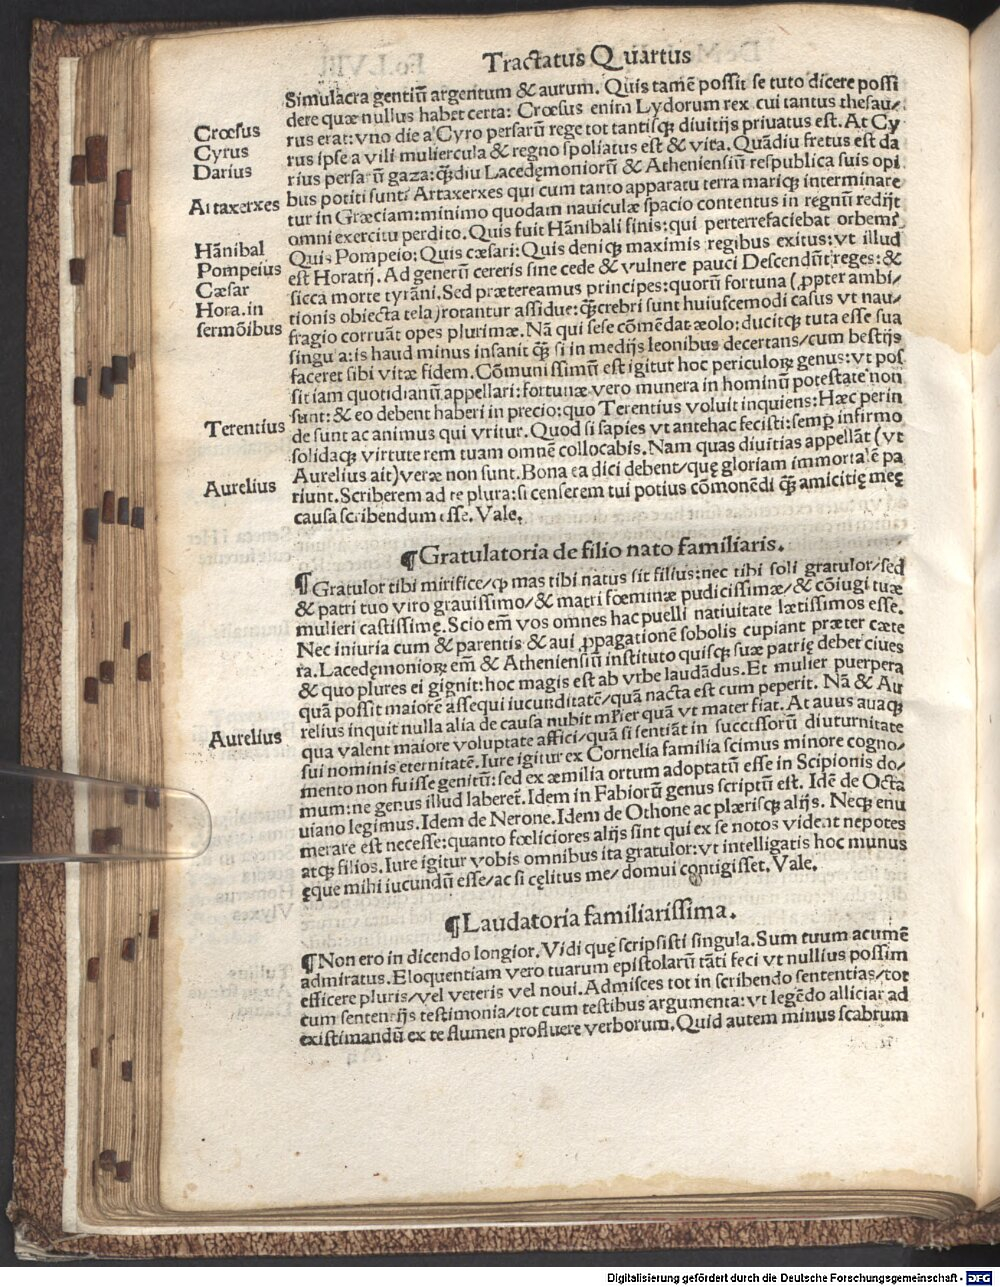 Tractatus Quartus
Simulacra gentiũ argentum & aurum. Quis tamẽ possit se tuto dicere possi
dere quæ nullus habet certa: Crœsus enim Lydorum rex cui tantus thesau/
Crœsus
rus erat: vno die a Cyro persarũ rege tot tantisqꝫ diuitijs priuatus est. At Cy
Cyrus
rus ipse a vili muliercula & regno spoliatus est & vita. Quãdiu fretus est da
Darius
rius persarũ gaza: qꝫ̃diu Lacedęmoniorũ & Atheniensiũ respublica suis opi
bus potiti sunt: Artaxerxes qui cum tanto apparatu terra mariqꝫ interminare
Artaxerxes
tur in Græciam: minimo quodam nauiculæ spacio contentus in regnũ redijt
omni exercitu perdito. Quis fuit Hãnibali finis: qui perterrefaciebat orbem:
Hãnibal
Quis Pompeio: Quis cæsari: Quis deniqꝫ maximis regibus exitus: vt illud
Pompeius
est Horatij. Ad generũ cereris sine cede & vulnere pauci Descendũt reges: &
Cæsar
sicca morte tyrãni. Sed prætereamus principes: quorũ fortuna (ꝓpter ambi/
Hora. in
tionis obiecta tela) rotantur assidue: qꝫ̃ crebri sunt huiuscemodi casus vt nau/
sermõibus
fragio corruãt opes plurimæ. Nã qui sese cõmẽdat æolo: ducitqꝫ tuta esse sua
singula: is haud minus insanit qꝫ̃ si in medijs leonibus decertans/cum bestijs
faceret sibi vitæ fidem. Cõmunissimũ est igitur hoc periculoꝝ genus: vt pos
sit iam quotidianũ appellari: fortunæ vero munera in hominũ potestate non
sunt: & eo debent haberi in precio: quo Terentius voluit inquiens: Hæc perin
Terentius
de sunt ac animus qui vtitur. Quod si sapies vt antehac fecisti: semꝑ infirmo
solidaqꝫ virtute rem tuam omnẽ collocabis. Nam quas diuitias appellãt (vt
Aurelius ait) veræ non sunt. Bona ea dici debent/quę gloriam immortalẽ pa
Aurelius
riunt. Scriberem ad te plura: si censerem tui potius cõmonẽdi qꝫ̃ amicitię meę
causa scribendum esse. Vale.
¶Gratulatoria de filio nato familiaris.
¶Gratulor tibi mirifice/ꝙ mas tibi natus sit filius: nec tibi soli gratulor/sed
& patri tuo viro grauissimo/& matri fœminæ pudicissimæ/& cõiugi tuæ
mulieri castissimę. Scio em̃ vos omnes hac puelli natiuitate lætissimos esse.
Nec iniuria cum & parentis & aui ꝓpagationẽ sobolis cupiant præter cæte
ra. Lacedęmonioꝝ em̃ & Atheniensiũ instituto quisqꝫ suæ patrię debet ciues
& quo plures ei gignit: hoc magis est ab vrbe laudãdus. Et mulier puerpera
quã possit maiorẽ assequi iucunditatẽ/quã nacta est cum peperit. Nã & Au
Aurelius
relius inquit nulla alia de causa nubit mľier quã vt mater fiat. At auus auaqꝫ
qua valent maiore voluptate affici/quã si sentiãt in successorũ diuturnitate
sui nominis eternitatẽ. Iure igitur ex Cornelia familia scimus minore cogno/
mento non fuisse genitũ: sed ex æmilia ortum adoptatũ esse in Scipionis do/
mum: ne genus illud laberet̃. Idem in Fabiorũ genus scriptũ est. Idẽ de Octa
uiano legimus. Idem de Nerone. Idem de Othone ac plærisqꝫ alijs. Neqꝫ enu
merare est necesse: quanto fœliciores alijs sint qui ex se notos vident nepotes
atqꝫ filios. Iure igitur vobis omnibus ita gratulor: vt intelligatis hoc munus
ęque mihi iucundũ esse/ac si cęlitus me/domui contigisset. Vale.
¶Laudatoria familiarissima.
¶Non ero in dicendo longior. Vidi quę scripsisti singula. Sum tuum acumẽ
admiratus. Eloquentiam vero tuarum epistolarũ tãti feci vt nullius possim
efficere pluris/vel veteris vel noui. Admisces tot in scribendo sententias/tot
cum sentencijs testimonia/tot cum testibus argumenta: vt legẽdo alliciar ad
existimandũ ex te flumen profluere verborum. Quid autem minus scabrum
Digitalisierung gefördert durch die Deutsche Forschungsgemeinschaft - DFG